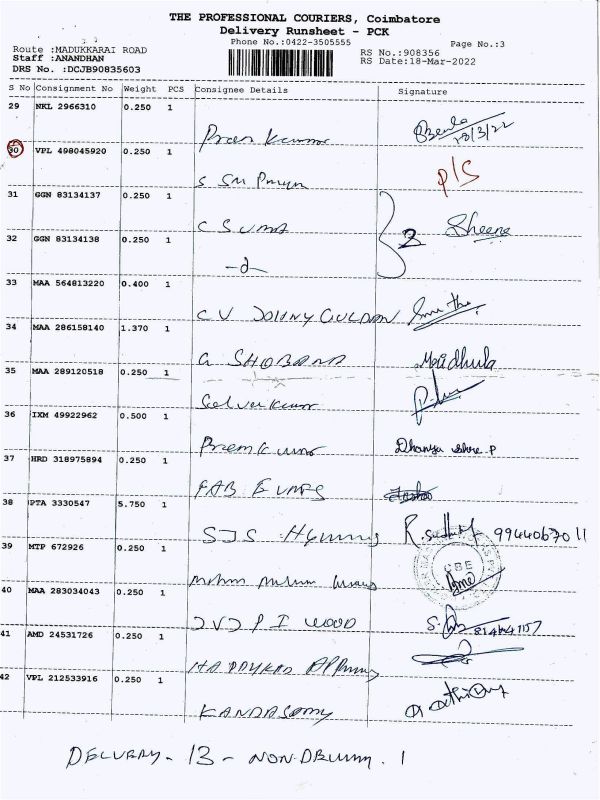 THE PROFESSIONAL COURIERS, Coimbatore
Delivery Runsheet - PCK
Phone No.:0422-3505555
Page No.:3
Route :MADUKKARAI ROAD
Staff :ANANDHAN
DRS No. :DCJB90835603
RS No.:908356
RS Date:18-Mar-2022
S No Consignment No Weight PCS Consignee Details Signature
29 NKL 2966310 0.250 1
30 VPL 498045920 0.250 1
P/S
31 GGN 83134137 0.250 1
C SUMA
2 Sheena
32 GGN 83134138 0.250 1
33 MAA 564813220 0.400 1
C V
34 MAA 286158140 1.370 1
G SHOBANA Mridhula
35 MAA 289120518 0.250 1
Selvakumar
36 IXM 49922962 0.500 1
Premkumar Dhanya Shree P
37 HRD 318975894 0.250 1
FAB
38 PTA 3330547 5.750 1
SJS 9944067011
39 MTP 672926 0.250 1
CBE
40 MAA 283034043 0.250 1
JVJ P I WOOD
41 AMD 24531726 0.250 1
42 VPL 212533916 0.250 1
KANDASAMY
DELIVERY - 13 - NON.DELIVERY . 1